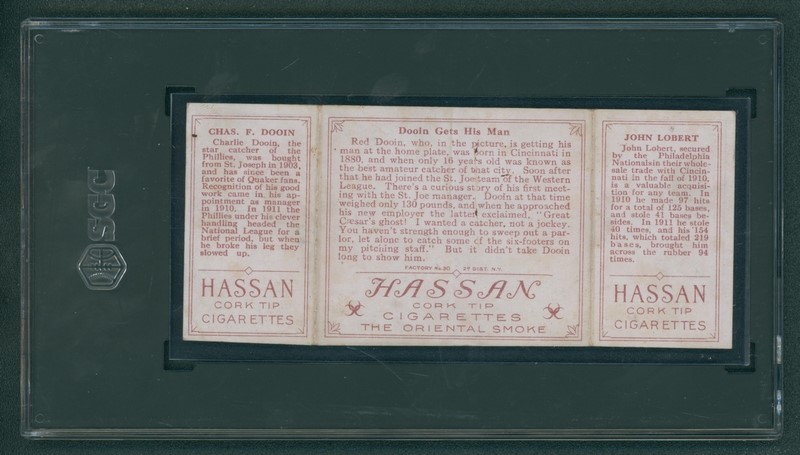 SGC
CHAS. F. DOOIN
Charlie Dooin, the
star catcher of the
Phillies, was bought
from St. Joseph in 1903,
and has since been a
favorite of Quaker fans.
Recognition of his good
work came in his ap-
pointment as manager
in 1910. In 1911 the
Phillies under his clever
handling headed the
National League for a
brief period, but when
he broke his leg they
slowed up.
HASSAN
CORK TIP
CIGARETTES
Dooin Gets His Man
Red Dooin, who, in the picture, is getting his
man at the home plate, was born in Cincinnati in
1880, and when only 16 years old was known as
the best amateur catcher of that city. Soon after
that he had joined the St. Joe team of the Western
League. There's a curious story of his first meet-
ing with the St. Joe manager. Dooin at that time
weighed only 130 pounds, and when he approached
his new employer the latter exclaimed, "Great
Cæsar's ghost! I wanted a catcher, not a jockey.
You haven't strength enough to sweep out a par-
lor, let alone to catch some of the six-footers on
my pitching staff." But it didn't take Dooin
long to show him.
FACTORY No.30 2d DIST. N.Y.
HASSAN
CORK TIP
CIGARETTES
THE ORIENTAL SMOKE
JOHN LOBERT
John Lobert, secured
by the Philadelphia
Nationals in their whole-
sale trade with Cincin-
nati in the fall of 1910,
is a valuable acquisi-
tion for any team. In
1910 he made 97 hits
for a total of 125 bases,
and stole 41 bases be-
sides. In 1911 he stole
40 times, and his 154
hits, which totaled 219
bases, brought him
across the rubber 94
times.
HASSAN
CORK TIP
CIGARETTES